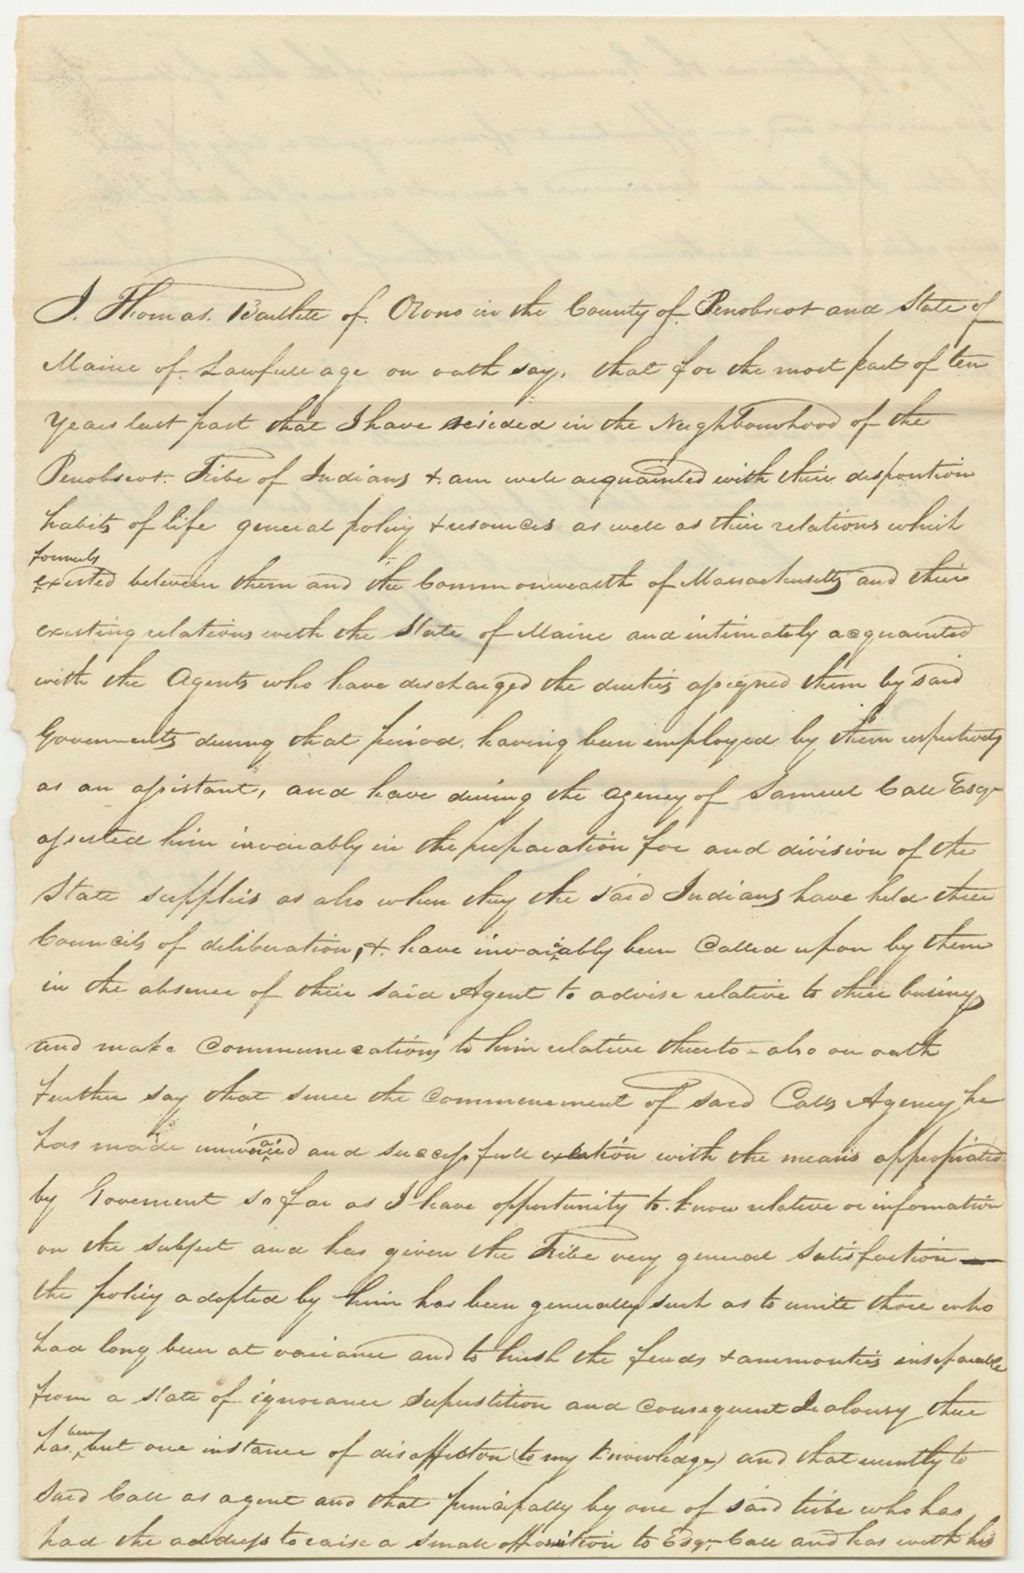 I. Thomas. Bartlete of. Orono in the County of. Penobscot and State of
Maine of Lawfull age on oath say, that for the most part of ten
Years last past that I have resided in the Neighbourhood of the
Penobscot. Tribe of Indians & am well acquainted with their disposition
habits of life general policy & resources as well as their relations which
formerly
existed between them and the Commonwealth of Massachusetts and their
existing relations with the State of Maine and intimately acquainted
with the Agents who have discharged the duties assigned them by said
Governments during that period, having been employed by them respectively
as an assistant, and have during the agency of Samuel Call Esqr
assisted him invariably in the preparation for and division of the
State supplies as also when they the said Indians have held their
Councils of deliberation, & have invariably been Called upon by them
in the absence of their said Agent to advise relative to their business
and make Communications to him relative thereto - also on oath
further say that since the commencement of said Calls Agency he
has made and successfull with the means appropriated
by Goverment so far as I have opportunity to know relative or information
on the subject and has given the Tribe very general satisfaction —
the policy adopted by him has been generally such as to unite those who
had long been at variance and to hush the feuds & ammonties inseparable
from a state of ignorance supustition and consequent Jealousy there
has been but one instance of disaffection (to my knowledge) and that recently to
said Call as agent and that principally by one of said tribe who has
had the address to raise a small opposition to Esqr Call and has with his